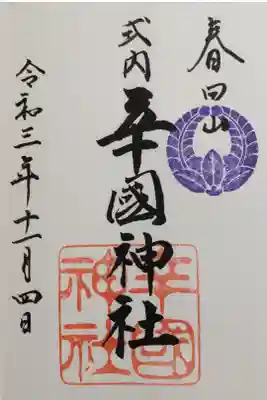 春日山
式内
辛國神社
令和三年十一月四日
辛國
神社